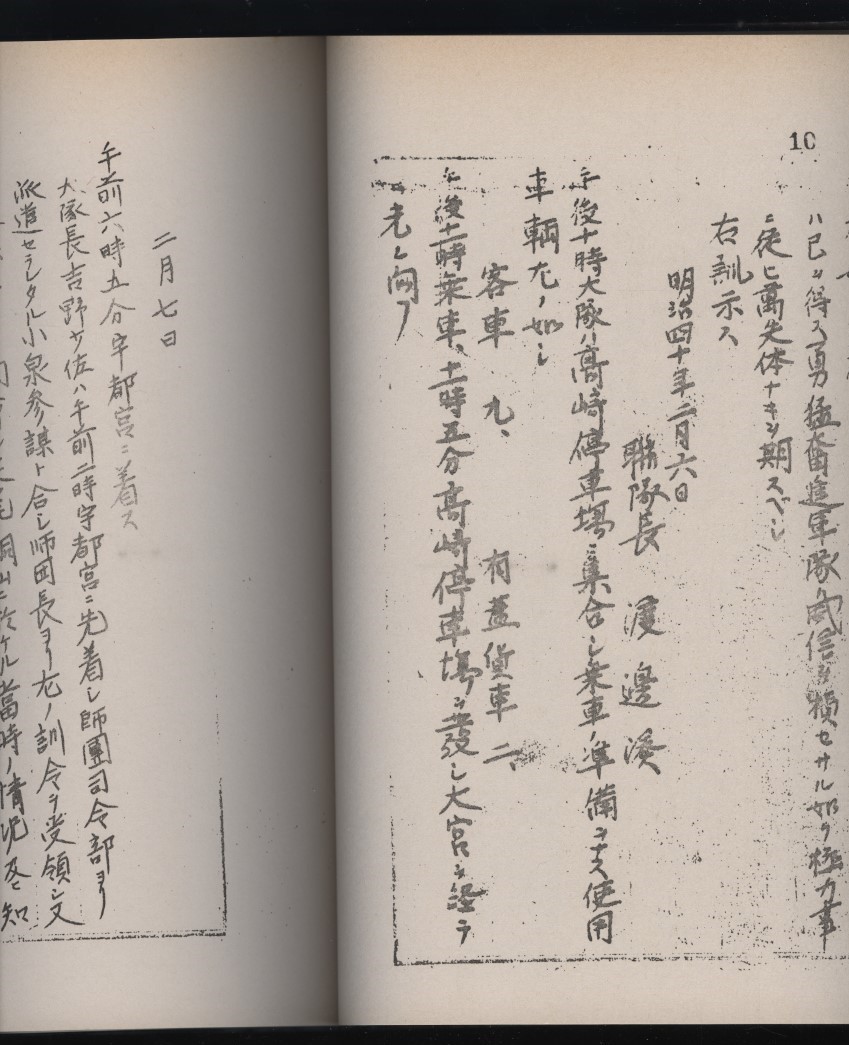 10
ハ已ヲ得ス勇猛奮進軍隊ノ威信ヲ損セサル如ク極力事
ニ従ヒ萬失体ナキヲ期スベシ
右訓示ス
明治四十年二月六日
聯隊長 渡邊湊
午後十時大隊ハ高崎停車場ニ集合シ乗車ノ準備ヲナス使用
車輌左ノ如シ
客車 九、 有蓋貨車 二、
午後十一時乗車、十一時五分高崎停車場ヲ出發シ大宮ヲ経テ
先ニ向フ
二月七日
午前六時五分宇都宮ニ着ス
大隊長吉野少佐ハ午前二時宇都宮ニ先着シ師團司令部ヨリ
派遣セラレタル小泉参謀ト合シ師団長ヨリ左ノ訓令ヲ受領シ又
ニ於ケル當時ノ情况及ヒ知